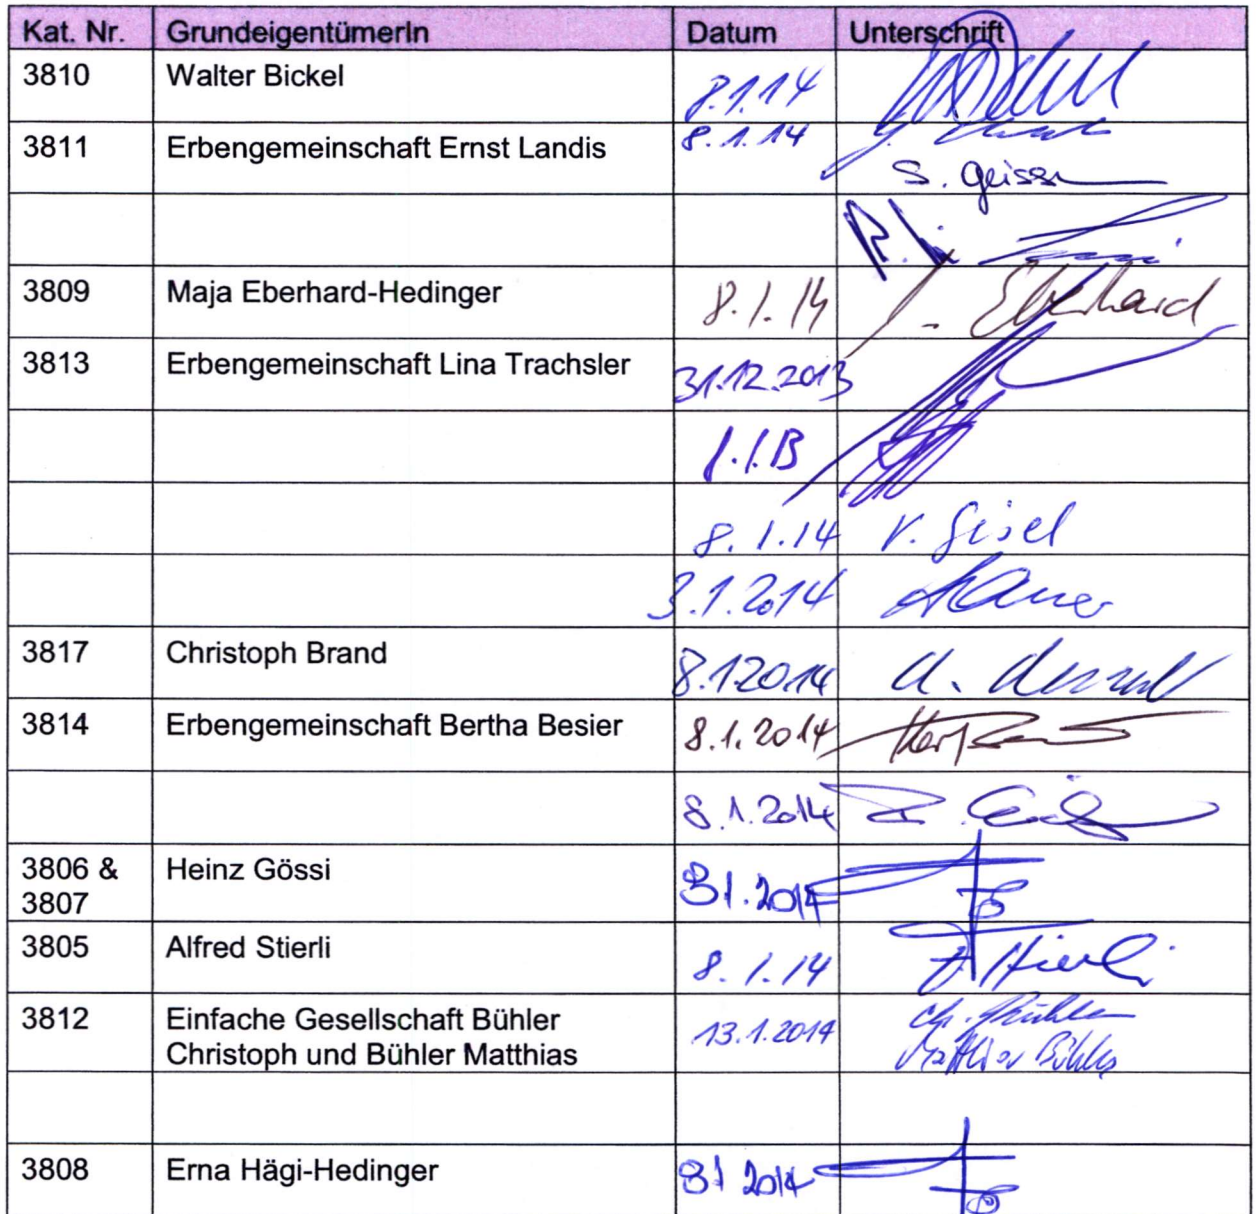 Kat. Nr. GrundeigentümerIn Datum Unterschrift
3810 Walter Bickel 8.1.14
3811 Erbengemeinschaft Ernst Landis 8.1.14
S. Geisser
3809 Maja Eberhard-Hedinger 8.1.14 Eberhard
3813 Erbengemeinschaft Lina Trachsler 31.12.2013
8.1.14 V. Gisel
3.1.2014
3817 Christoph Brand 8.1.2014
3814 Erbengemeinschaft Bertha Besier 8.1.2014
8.1.2014
3806 & Heinz Gössi 8.1.2014
3807
3805 Alfred Stierli 8.1.14 A. Stierli
3812 Einfache Gesellschaft Bühler 13.1.2014 Ch. Bühler
Christoph und Bühler Matthias Matthias Bühler
3808 Erna Hägi-Hedinger 8.1.2014